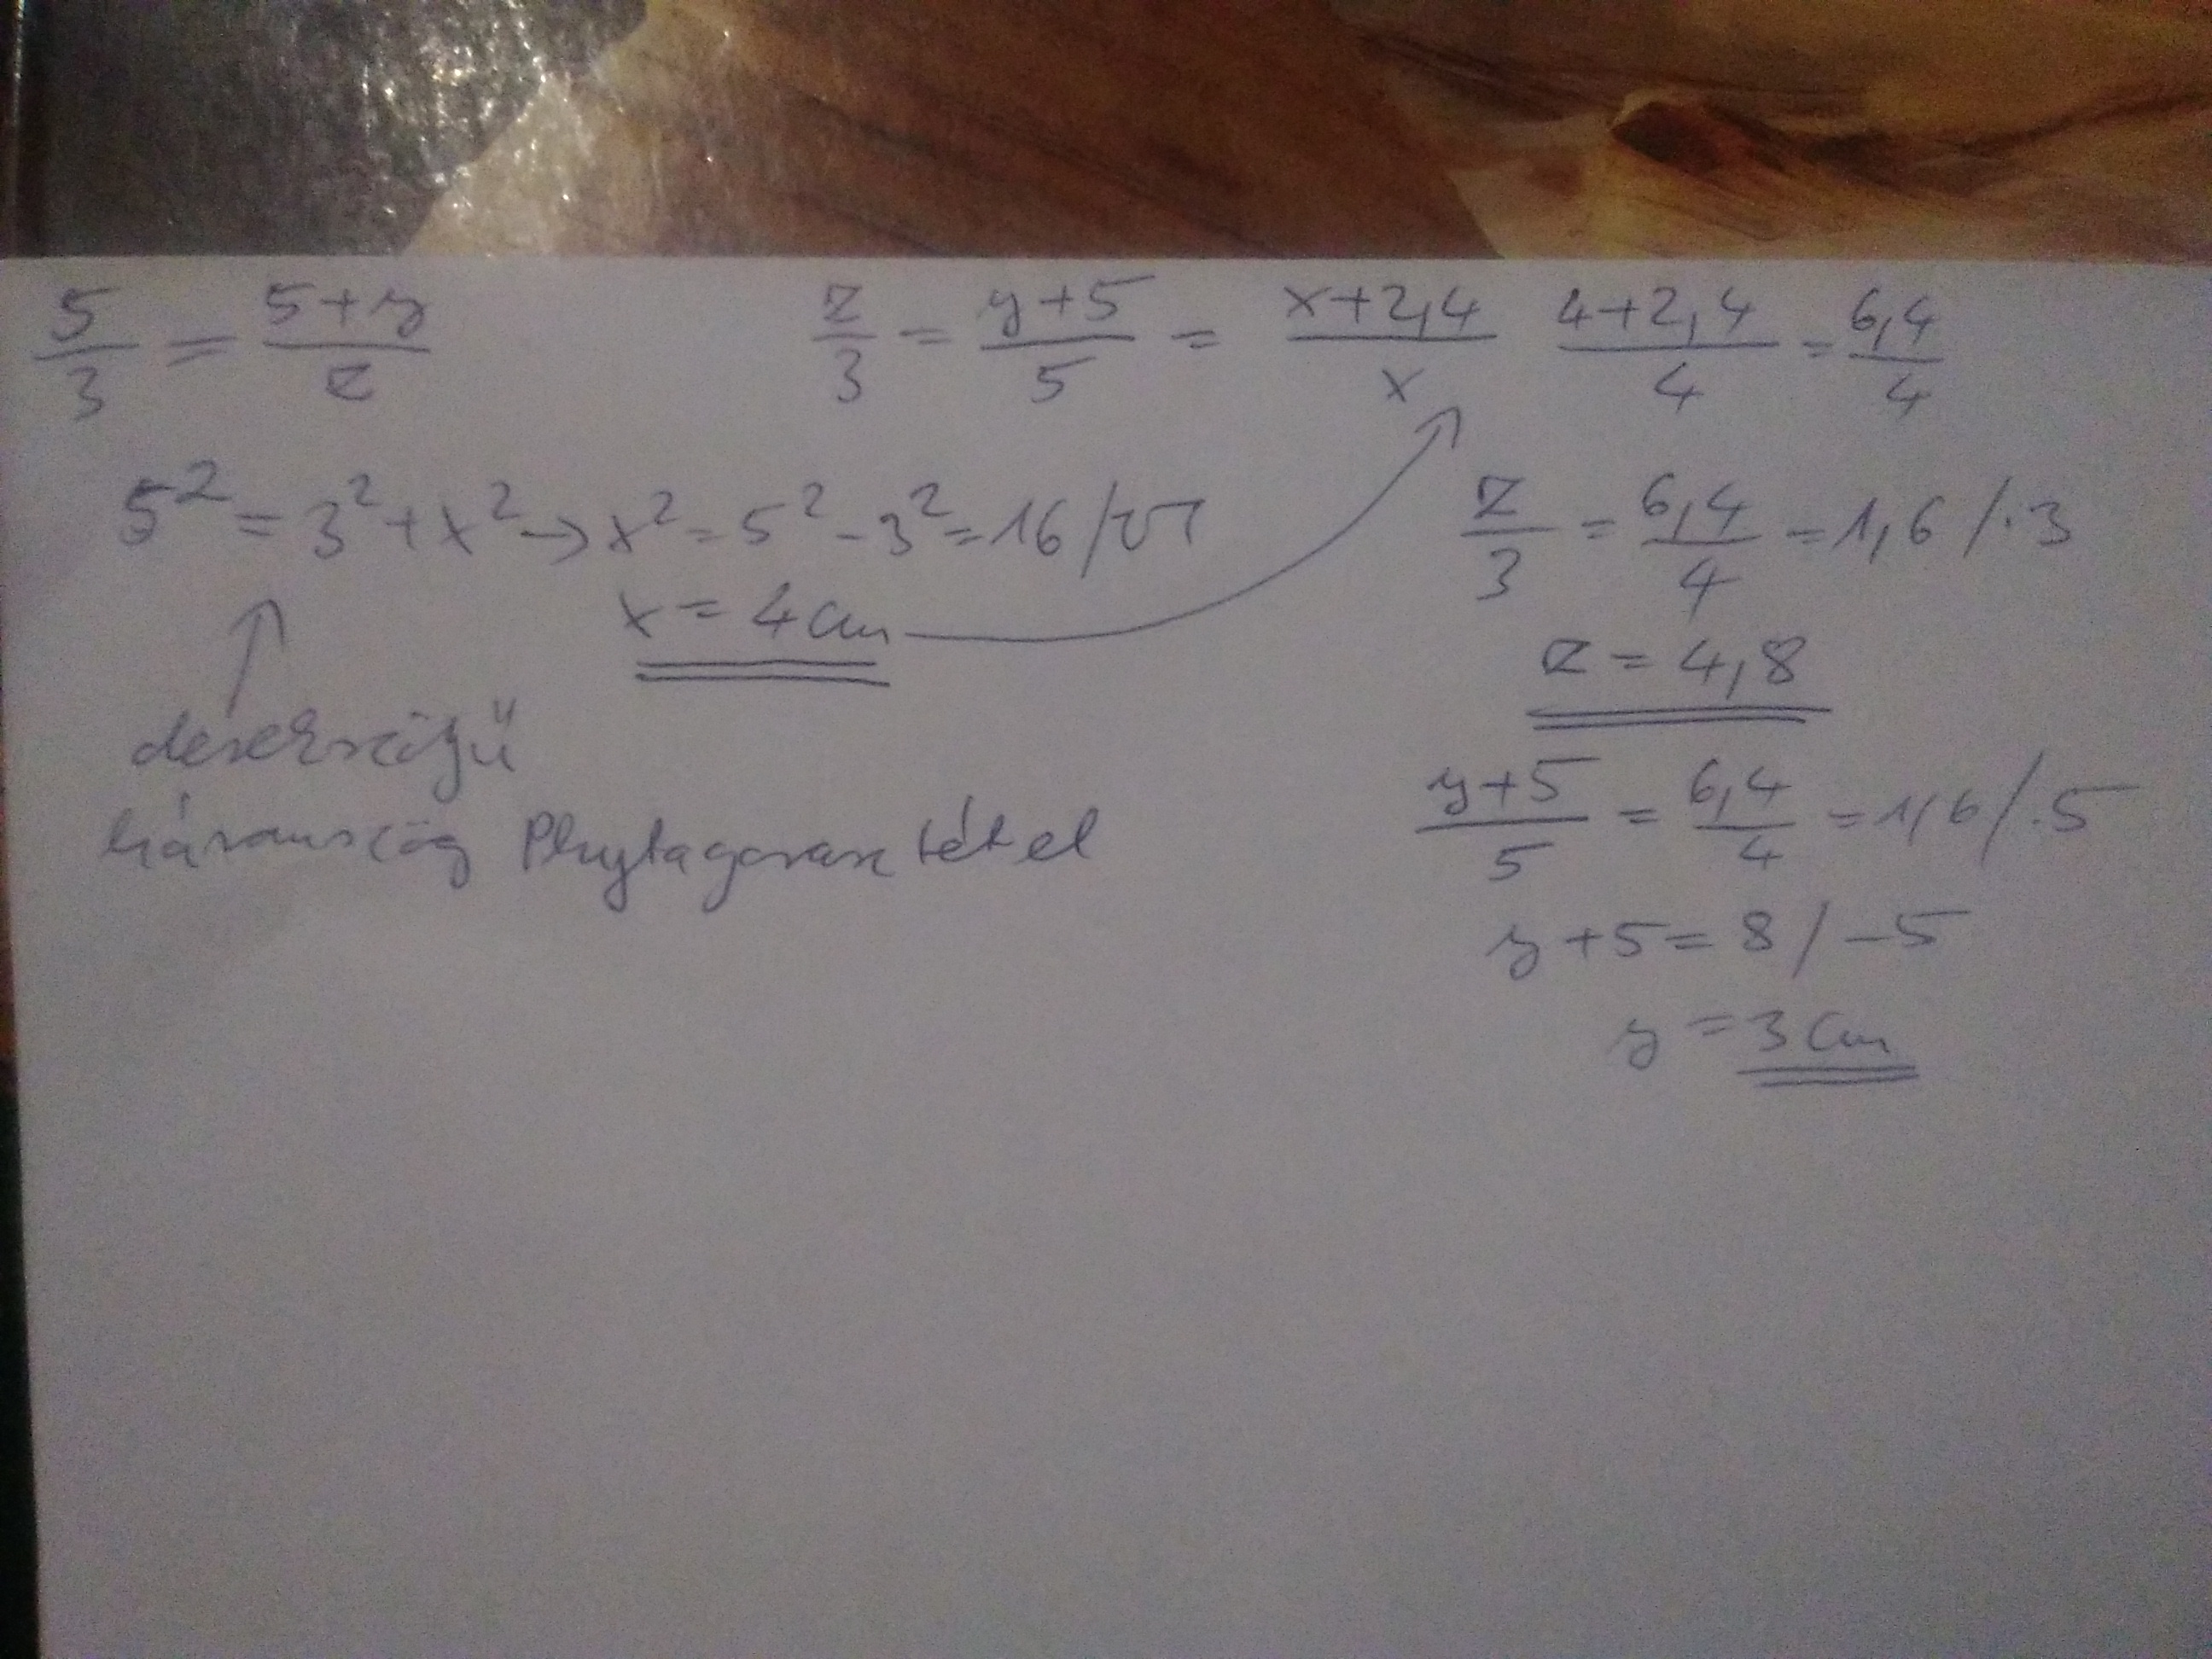 5/3 = 5+y/z
z/3 = y+5/5 = x+2,4/x 4+2,4/4 = 6,4/4
5² = 3² + x² → x² = 5² - 3² = 16 /√
x = 4 cm
derékszögű
háromszög Phytagorasz tétel
z/3 = 6,4/4 = 1,6 / ·3
z = 4,8
y+5/5 = 6,4/4 = 1,6 / ·5
y+5 = 8 / -5
y = 3 cm